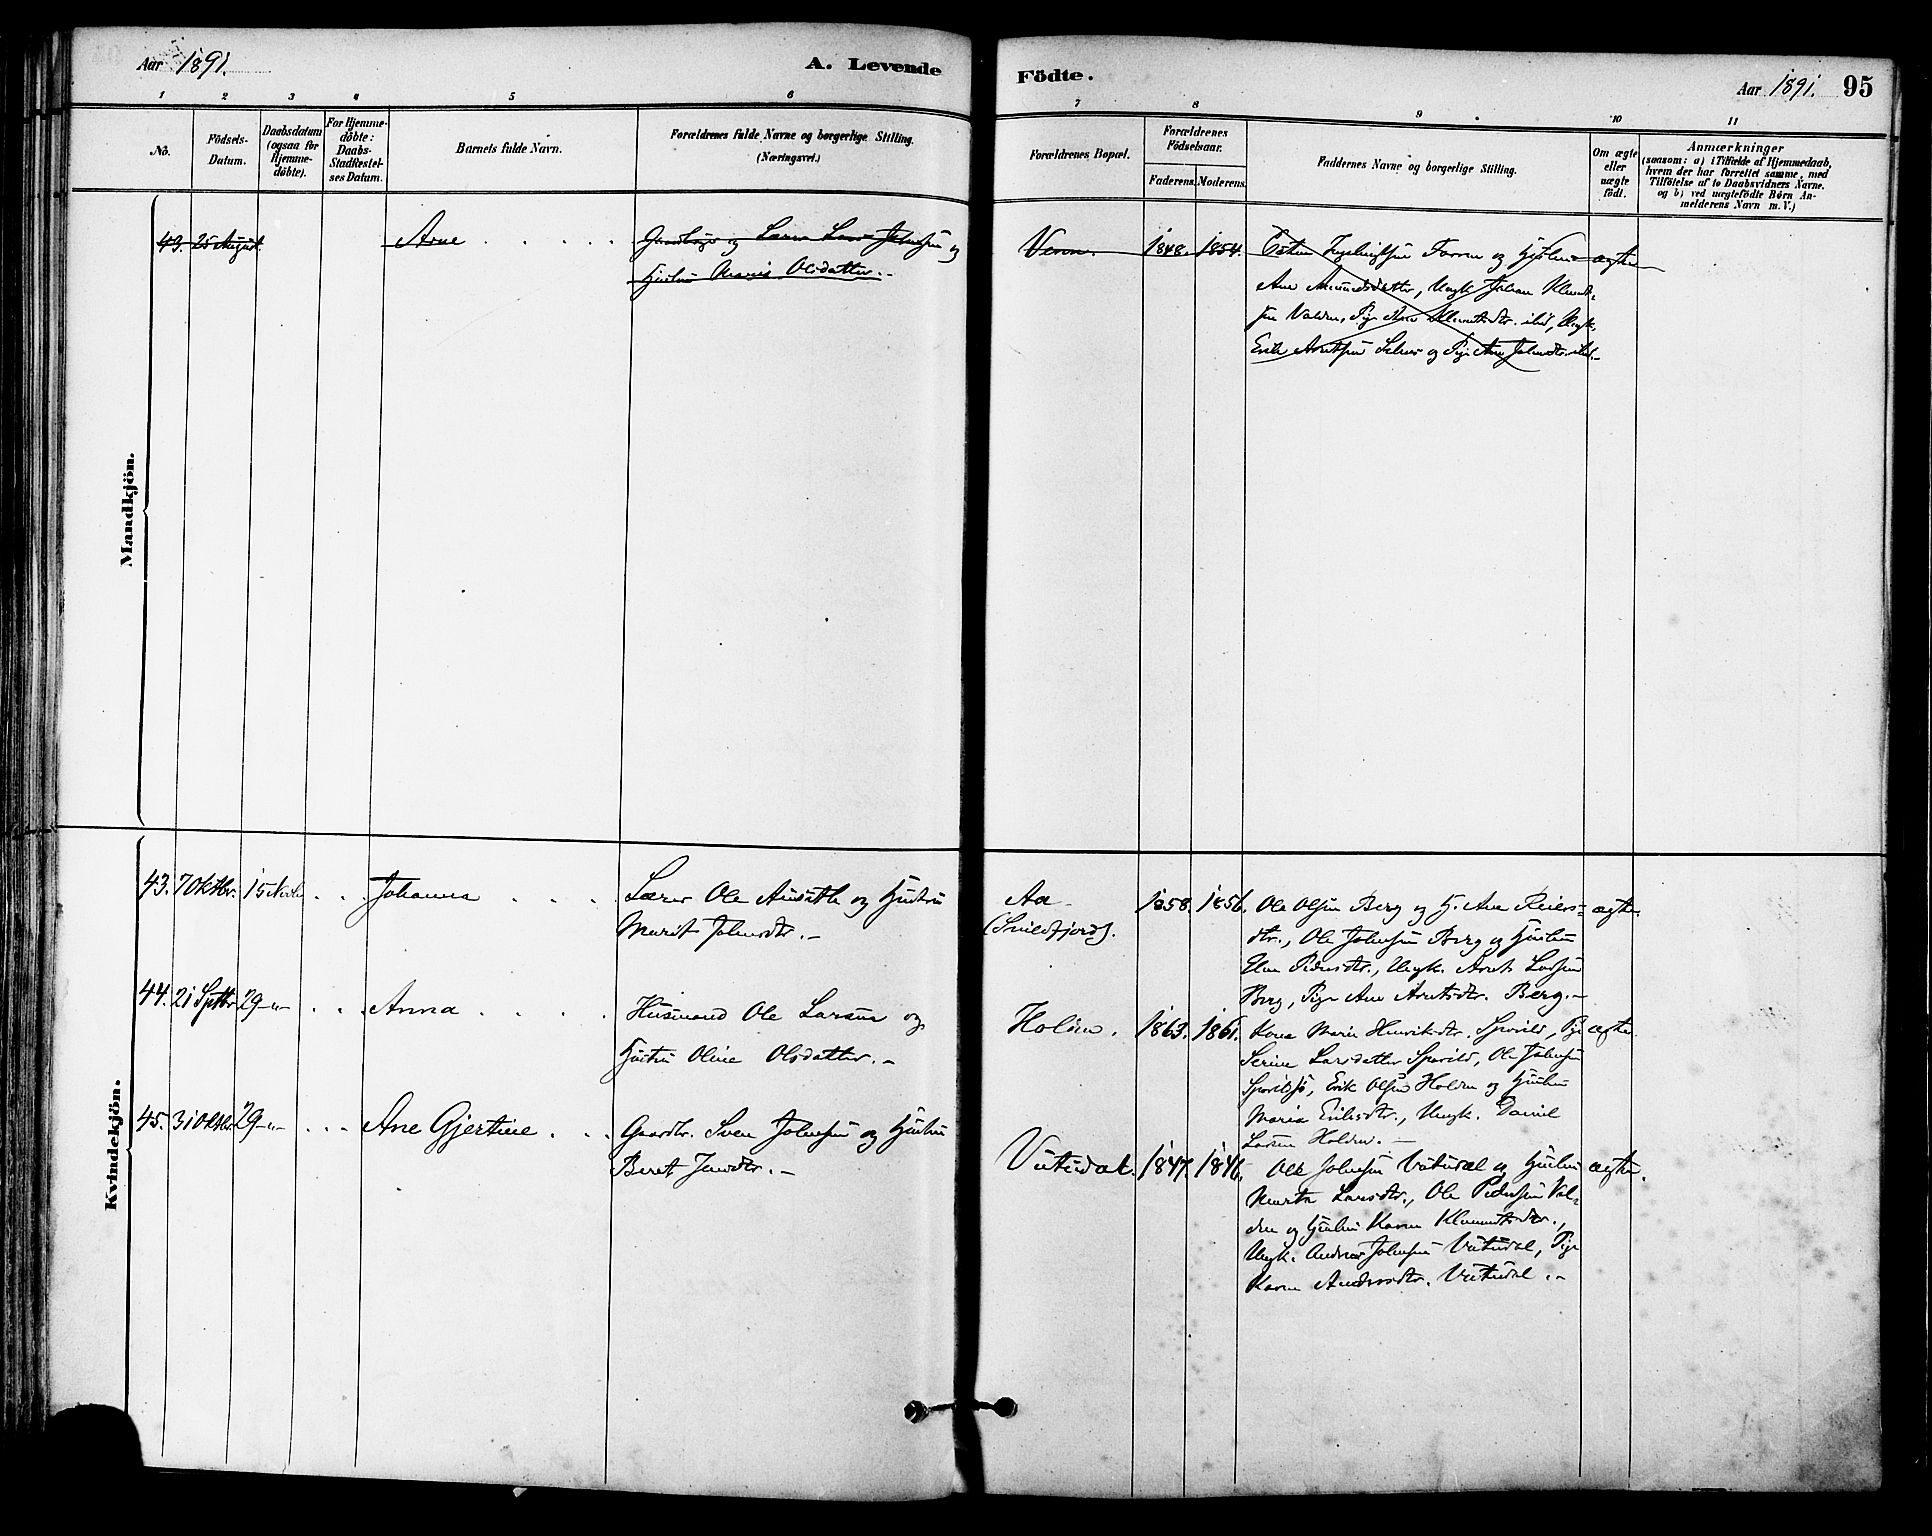 Aar 1891.
A. Levende
Födte.
Aar 1891. 95
1 2 3 4 5 6
7 8 9 10 11
No.
Födsels-
Datum.
Daabsdatum
(ogsaa for
Hjemme-
döbte).
For Hjemme-
döbte:
Daabs-
Stadfæstel-
ses Datum.
Barnets fulde Navn.
Forældrenes fulde Navne og borgerlige Stilling.
(Næringsvei.)
Forældrenes Bopæl.
Forældrenes
Födselsaar.
Faderens. Moderens.
Faddernes Navne og borgerlige Stilling.
Om ægte
eller
uægte
født.
Anmærkninger
(saasom: a) i Tilfælde af Hjemmedaab,
hvem der har forrettet samme, med
Tilföielse af to Daabsvidners Navne.
og b) ved uægtefödte Börn An-
melderens Navn m. V.)
Mandkjön.
43. 25 August. Arne
og Lærer Johnsen og
Hustru Olsdatter.-
1848. 1854.
og Hustru ægte
Ane Amundsdatter, Ungk. Johan
Pige Ane
Erik og Pige Ane Johnsdtr.
Kvindekjön.
43. 7 Oktbr. 15 Novbr. Johanna
Lærer Ole Aunsæth og Hustru
Marit Johnsdtr.-
Aa
(Snildfjord).
1858. 1856.
Ole Olsen Berg og H. Ane Reiers-
dtr., Ole Johnsen Berg og Hustru
Elen Pedersdtr., Ungk. Arnt Larsen
Berg, Pige Ane Arntsdtr. Berg.-
ægte.
44. 21 Septbr. 29-"- Anna
Husmand Ole Larsen og
Hustru Oline Olsdatter.-
Holden.
1863. 1861.
Kone Marie Henriksdtr. Sporild, Pige
Serine Larsdatter Sporild, Ole Johnsen
Erik Olsen Holden og Hustru
Maria Eriksdtr., Ungk. Daniel
Larsen Holden.-
ægte.
45. 31 Oktbr. 29-"- Ane Gjertine
Gaardbr. Sven Johnsen og Hustru
Beret Jensdtr.-
Vutudal. 1847. 1846.
Ole Johnsen Vutudal og Hustru
Marta Larsdtr., Ole Pedersen Val-
den og Hustru Karen Klemmetsdtr.,
Ungk. Andreas Johnsen Vutudal, Pige
Karen Andersdtr. Vutudal.-
ægte.